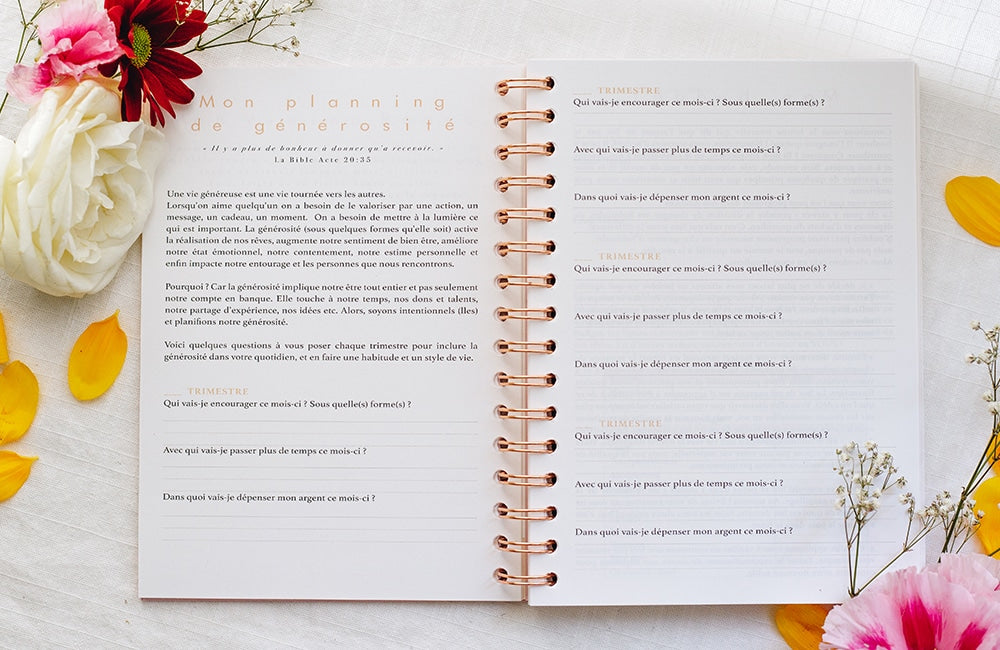 Mon planning
de générosité
« Il y a plus de bonheur à donner qu'a recevoir. »
La Bible Acte 20:35
Une vie généreuse est une vie tournée vers les autres.
Lorsqu'on aime quelqu'un on a besoin de le valoriser par une action, un
message, un cadeau, un moment. On a besoin de mettre à la lumière ce
qui est important. La générosité (sous quelques formes qu'elle soit) active
la réalisation de nos rêves, augmente notre sentiment de bien être, améliore
notre état émotionnel, notre contentement, notre estime personnelle et
enfin impacte notre entourage et les personnes que nous rencontrons.
Pourquoi ? Car la générosité implique notre être tout entier et pas seulement
notre compte en banque. Elle touche à notre temps, nos dons et talents,
notre partage d'expérience, nos idées etc. Alors, soyons intentionnels (lles)
et planifions notre générosité.
Voici quelques questions à vous poser chaque trimestre pour inclure la
générosité dans votre quotidien, et en faire une habitude et un style de vie.
___ TRIMESTRE
Qui vais-je encourager ce mois-ci ? Sous quelle(s) forme(s) ?
Avec qui vais-je passer plus de temps ce mois-ci ?
Dans quoi vais-je dépenser mon argent ce mois-ci ?
___ TRIMESTRE
Qui vais-je encourager ce mois-ci ? Sous quelle(s) forme(s) ?
Avec qui vais-je passer plus de temps ce mois-ci ?
Dans quoi vais-je dépenser mon argent ce mois-ci ?
___ TRIMESTRE
Qui vais-je encourager ce mois-ci ? Sous quelle(s) forme(s) ?
Avec qui vais-je passer plus de temps ce mois-ci ?
Dans quoi vais-je dépenser mon argent ce mois-ci ?
___ TRIMESTRE
Qui vais-je encourager ce mois-ci ? Sous quelle(s) forme(s) ?
Avec qui vais-je passer plus de temps ce mois-ci ?
Dans quoi vais-je dépenser mon argent ce mois-ci ?